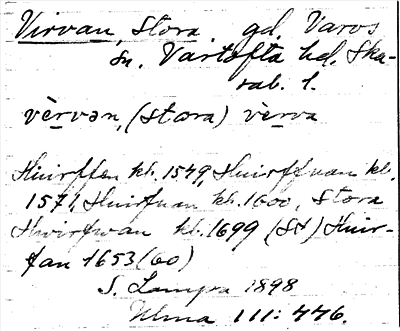 Virvan, Stora, gd, Varvs
sn. Vartofta hd. Ska-
rab. l.
vèrvən, (stora) vèrva
Huirffen kb. 1549, Huirffuan kb.
1571, Huirfuan kb. 1600, Stora
Hvirfwan kb. 1699 (St) Huir-
fan 1653 (60)
S. Lampa 1898
Ulma 111: 446.